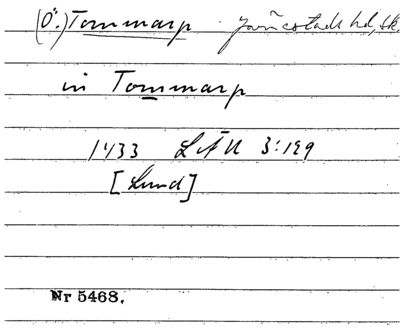 (Ö.) Tommarp Järrestads hd, Sk.
in Tommarp
1433 LÄU 3:129
[Lund]
Nr 5468.